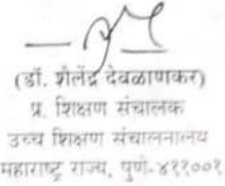 (डॉ. शैलेंद्र देवळाणकर)
प्र. शिक्षण संचालक
उच्च शिक्षण संचालनालय
महाराष्ट्र राज्य, पुणे-४११००१